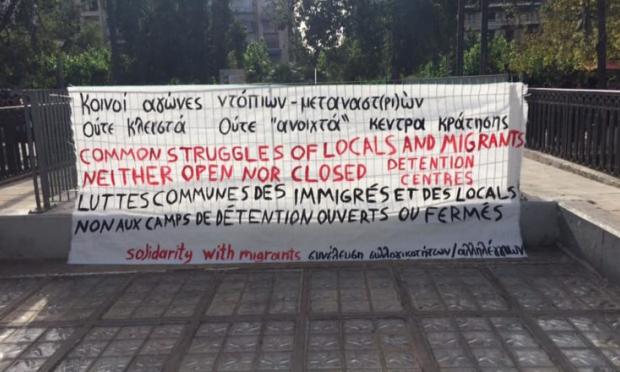 Κοινοί αγώνες ντόπιων-μεταναστ(ρι)ών
Ούτε κλειστά Ούτε "ανοιχτά" κεντρα κράτησης
COMMON STRUGGLES OF LOCALS AND MIGRANTS
NEITHER OPEN NOR CLOSED DETENTION CENTRES
LUTTES COMMUNES DES IMMIGRÉS ET DES LOCALS
NON AUX CAMPS DE DÉTENTION OUVERTS OU FERMÉS
solidarity with migrants συνέλευση συλλογικοτήτων/αλληλέγγυων